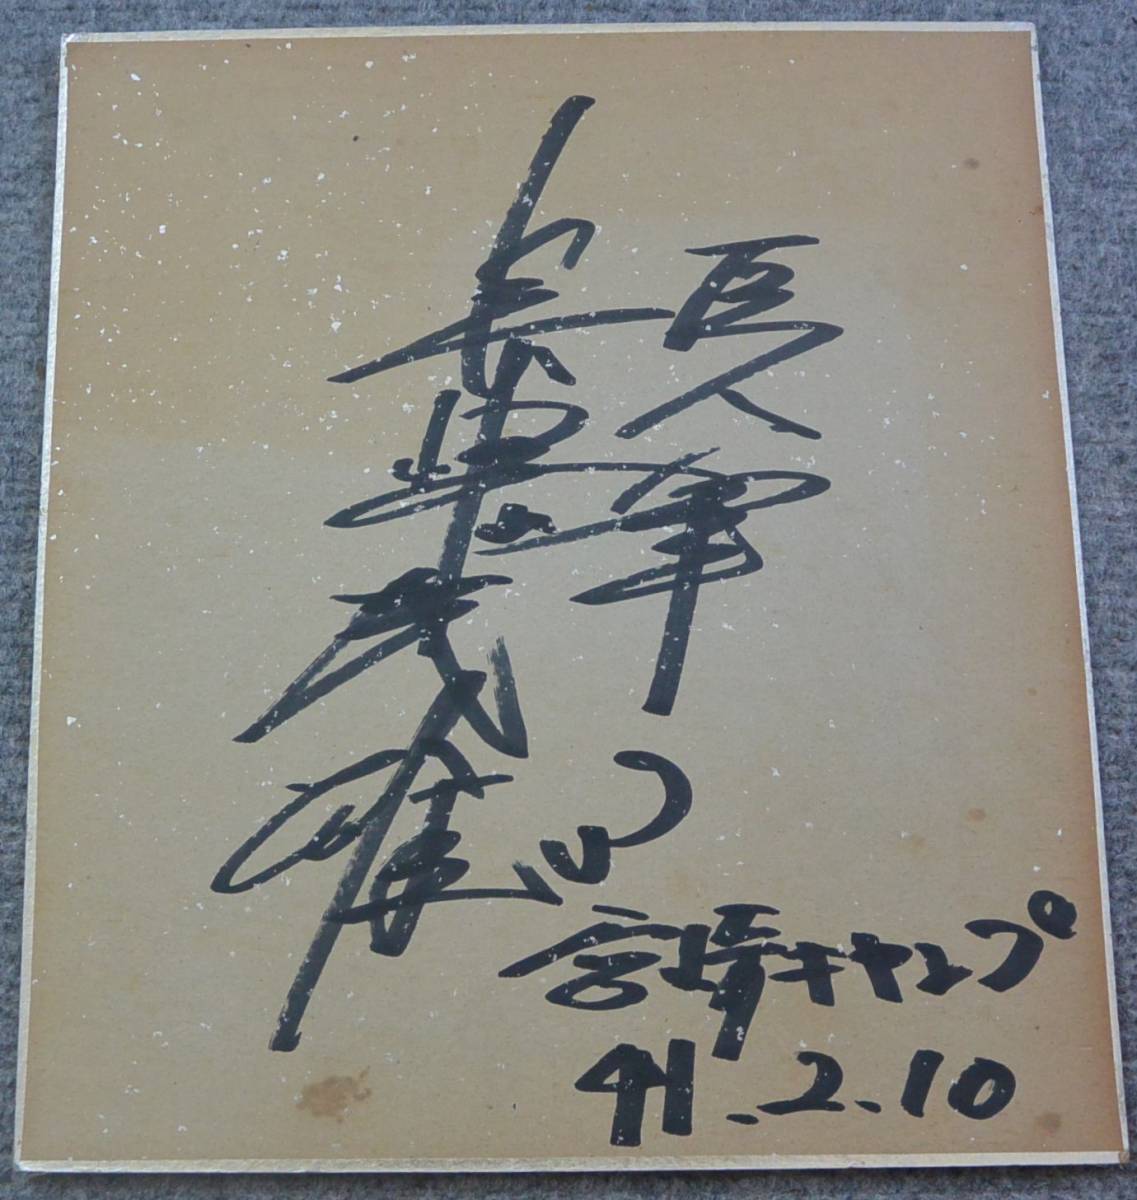 巨人軍
長嶋茂雄
宮崎キャンプ
41.2.10